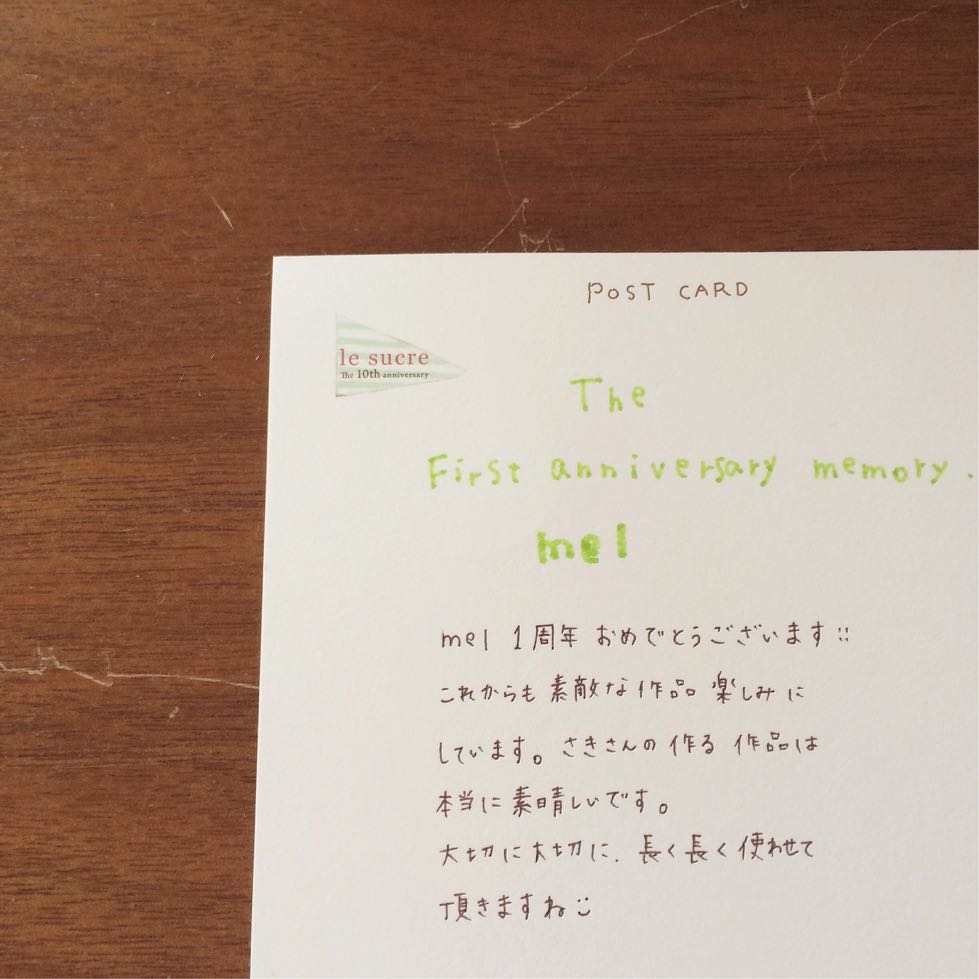 POST CARD
le sucre
The 10th anniversary
The
First anniversary memory.
mel
mel 1周年 おめでとうございます!!
これからも 素敵な 作品 楽しみに
しています。さきさんの 作る 作品は
本当に 素晴しいです。
大切に大切に、長く長く使わせて
頂きますね